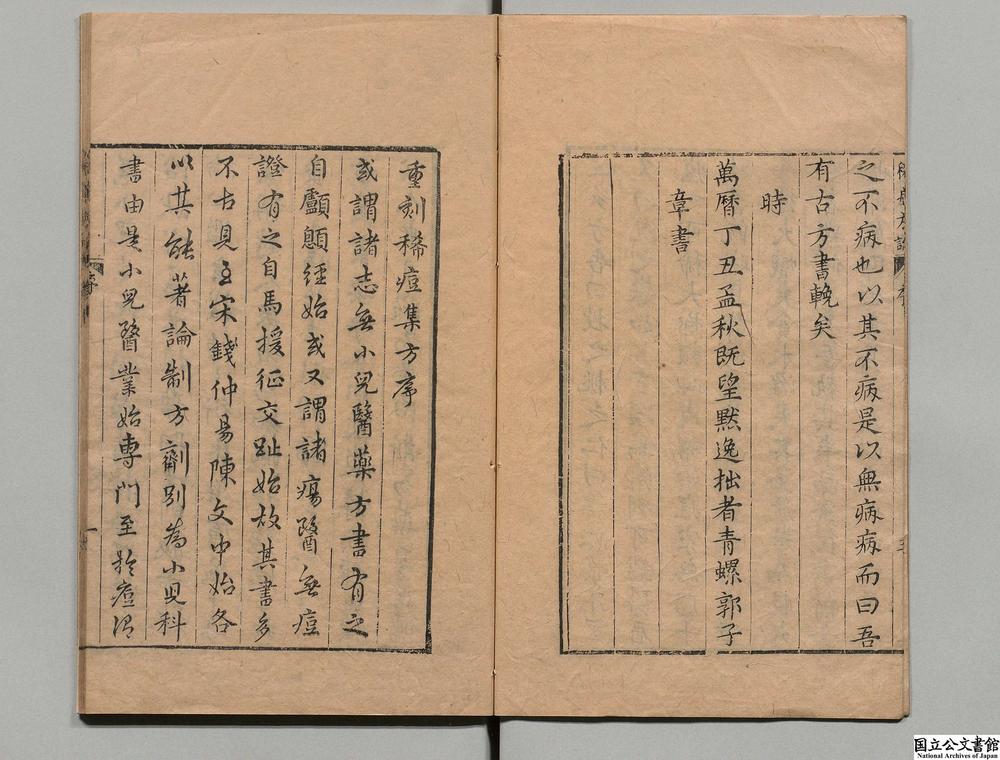 之不病也以其不病是以無病病而曰吾
有古方書輓矣
時
萬曆丁丑孟秋既望默逸拙者青螺郭子
章書
重刻稀痘集方序
或謂諸志無小兒醫藥方書有之
自顱顖經始或又謂諸瘍醫無痘
證有之自馬援征交趾始故其書多
不古見至宋錢仲昜陳文中始各
以其能著論制方劑別為小兒科
書由是小兒醫業始專門至於痘
国立公文書館
National Archives of Japan